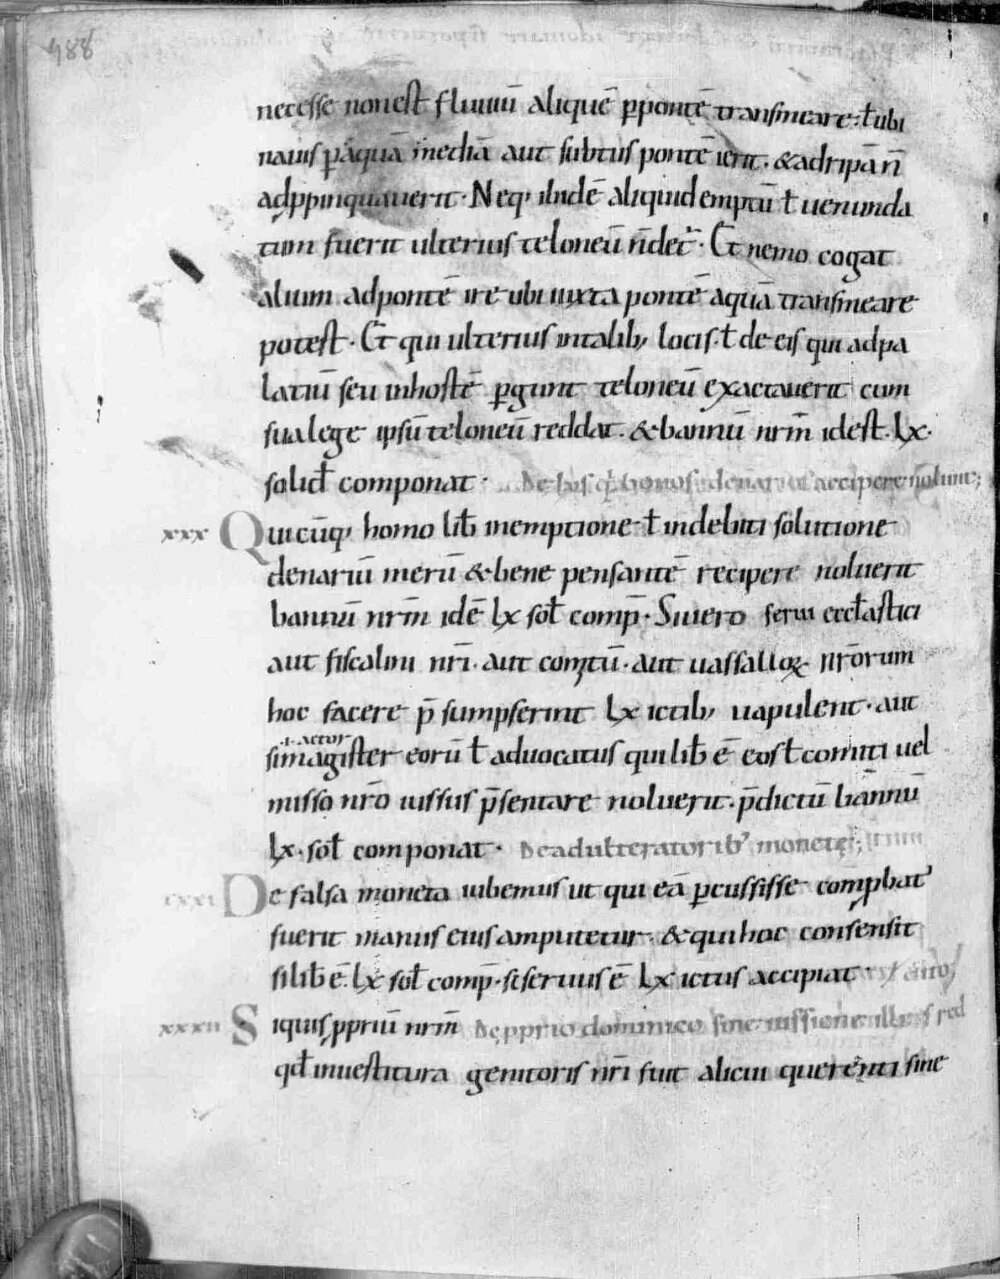 488
necesse nonest fluuiū aliquē ꝑpontē transmeare · ł ubi
nauis ꝑ aquā mediā aut subtus pontē ierit · & adripā ñ
adꝓpinquauerit · Neq; ibidē aliquid emptū ł uenunda
tum fuerit ulterius teloneū ñ det̄ · Et nemo cogat
alium adpontē ire ubi iuxta pontē aquā transmeare
potest · Et qui ulterius intalib; locis · ł de eis qui adpa
latiū seu inhostē ꝑgunt teloneū exactauerit cum
sua lege ipsū teloneū reddat · & bannū nr̄m idest · lx ·
solid̄ componat · De his q̄ bonos denarios accipere nolunt;
xxx Quicūq; homo lib̄ inemptione ł indebiti solutione
denariū merū & bene pensantē recipere noluerit
bannū nr̄m idē lx sol̄ comp̄ · Siuero serui eccl̄astici
aut fiscalini nr̄i · aut comitū · aut uassalloꝝ nr̄orum
hoc facere p̄sumpserint lx ictib; uapulent · aut
ł actor
si magister eorū ł aduocatus qui lib̄ ē eos ł comiti uel
misso nr̄o iussus p̄sentare noluerit · p̄dictū bannū
lx · sol̄ componat · De adulteratorib; monetę;
xxxi De falsa moneta iubemus ut qui eā ꝑcussisse comꝓbat'
fuerit manus eius amputetur · & qui hoc consensit
si lib̄ ē · lx sol̄ comp̄ · si seruus ē lx ictus accipiat ·
xxxii Siquis ꝓpriū nr̄m De ꝓprio dominico sine iussione illius red
qd̄ inuestitura genitoris nr̄i fuit alicui querenti sine